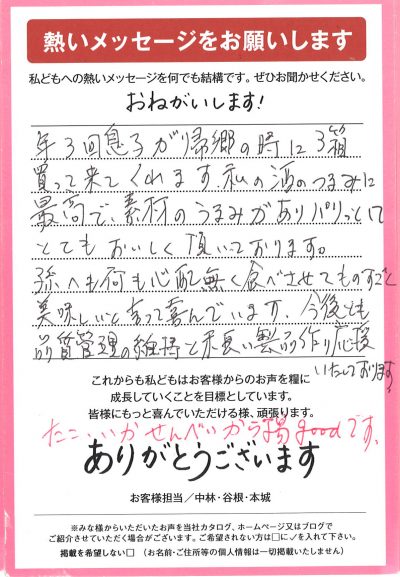 熱いメッセージをお願いします
私どもへの熱いメッセージを何でも結構です。ぜひお聞かせください。
おねがいします!
年3回息子が帰郷の時に3箱
買って来てくれます、私の酒のつまみに
最高で、素材のうまみがありパリっとして
とてもおいしく頂いております。
孫へも何も心配無く食べさせてものすごく
美味しいと言って喜んでいます、今後とも
品質管理の維持と末長い製品作り応援
いたしております。
これからも私どもはお客様からのお声を糧に
成長していくことを目標としています。
皆様にもっと喜んでいただける様、頑張ります。
たこ、いかせんべいから揚goodです、
ありがとうございます
お客様担当/中林・谷根・本城
※みな様からいただいたお声を当社カタログ、ホームページ又はブログで
ご紹介させていただく場合がございます。ご希望されない方は□に✓を入れて下さい。
掲載を希望しない□ (お名前・ご住所等の個人情報は一切掲載いたしません)